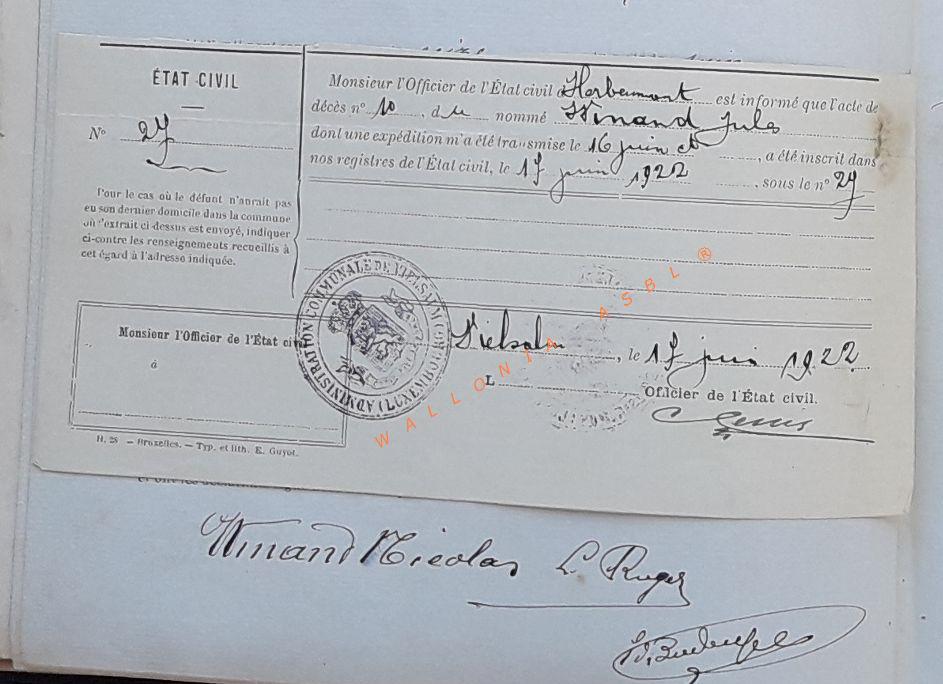 ÉTAT CIVIL
N° 27
Pour le cas où le défunt n'aurait pas
eu son dernier domicile dans la commune
où l'extrait ci-dessus est envoyé, indiquer
ci-contre les renseignements recueillis à
cet égard à l'adresse indiquée.
Monsieur l'Officier de l'État civil
à
H. 28 — Bruxelles. — Typ. et lith. E. Guyot.
Monsieur l'Officier de l'État civil à Herbeumont est informé que l'acte de
décès n° 10 du nommé Winand Jules
dont une expédition m'a été transmise le 16 juin ct, a été inscrit dans
nos registres de l'État civil, le 17 juin 1922, sous le n° 27
ADMINISTRATION COMMUNALE DE VIELSALM (LUXEMBOURG)
Vielsalm, le 17 juin 1922
L
Officier de l'État civil.
WALLONIA ASBL ®
Winand Nicolas
L. Ruger